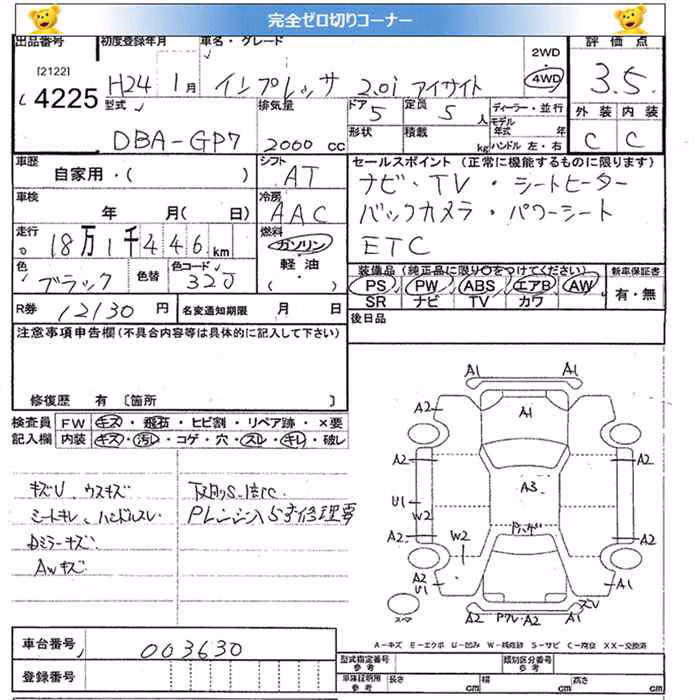 完全ゼロ切りコーナー
出品番号 初度登録年月 車名・グレード 2WD 評価点
[2122] H24 1月 インプレッサ 2.0i アイサイト 4WD 3.5
4225
型式 排気量 ドア 5 定員 5人 ディーラー・並行 外装 内装
DBA-GP7 2000cc 形状 積載 kg モデル年式 年 C C
ハンドル 左・右
車歴 シフト セールスポイント (正常に機能するものに限ります)
自家用・( ) AT ナビ・TV・シートヒーター
車検 冷房 バックカメラ・パワーシート
年 月( 日) AAC ETC
走行 18万1千446km 燃料 ガソリン
軽油 装備品 (純正品に限り○をつけてください) 新車保証書
色 ブラック 色替 色コード 32J ( ) PS PW ABS エアB AW 有・無
SR ナビ TV カワ
R券 12130円 名変通知期限 月 日 後日品
注意事項申告欄 (不具合内容等は具体的に記入して下さい)
修復歴 有 〔箇所 〕
検査員 FW キズ・飛石・ヒビ割・リペア跡・×要
記入欄 内装 キズ・汚レ・コゲ・穴・スレ・キレ・破レ
キズU、ウスキズ
シートキレ、ハンドルスレ
Dミラーキズ
AWキズ
下廻りS.
修理要
A1 A1
A2 A1
A2 A2
A3
U1 W2
A2 A2
W2
A2 U1 A1
スペア A2 A2 A1
A-キズ E-エクボ U-凹み W-補修跡 S-サビ C-腐食 XX-交換済
車台番号 003630
登録番号
型式指定番号 参考 類別区分番号 参考
車庫証明用 参考 長さ cm 幅 cm 高さ cm